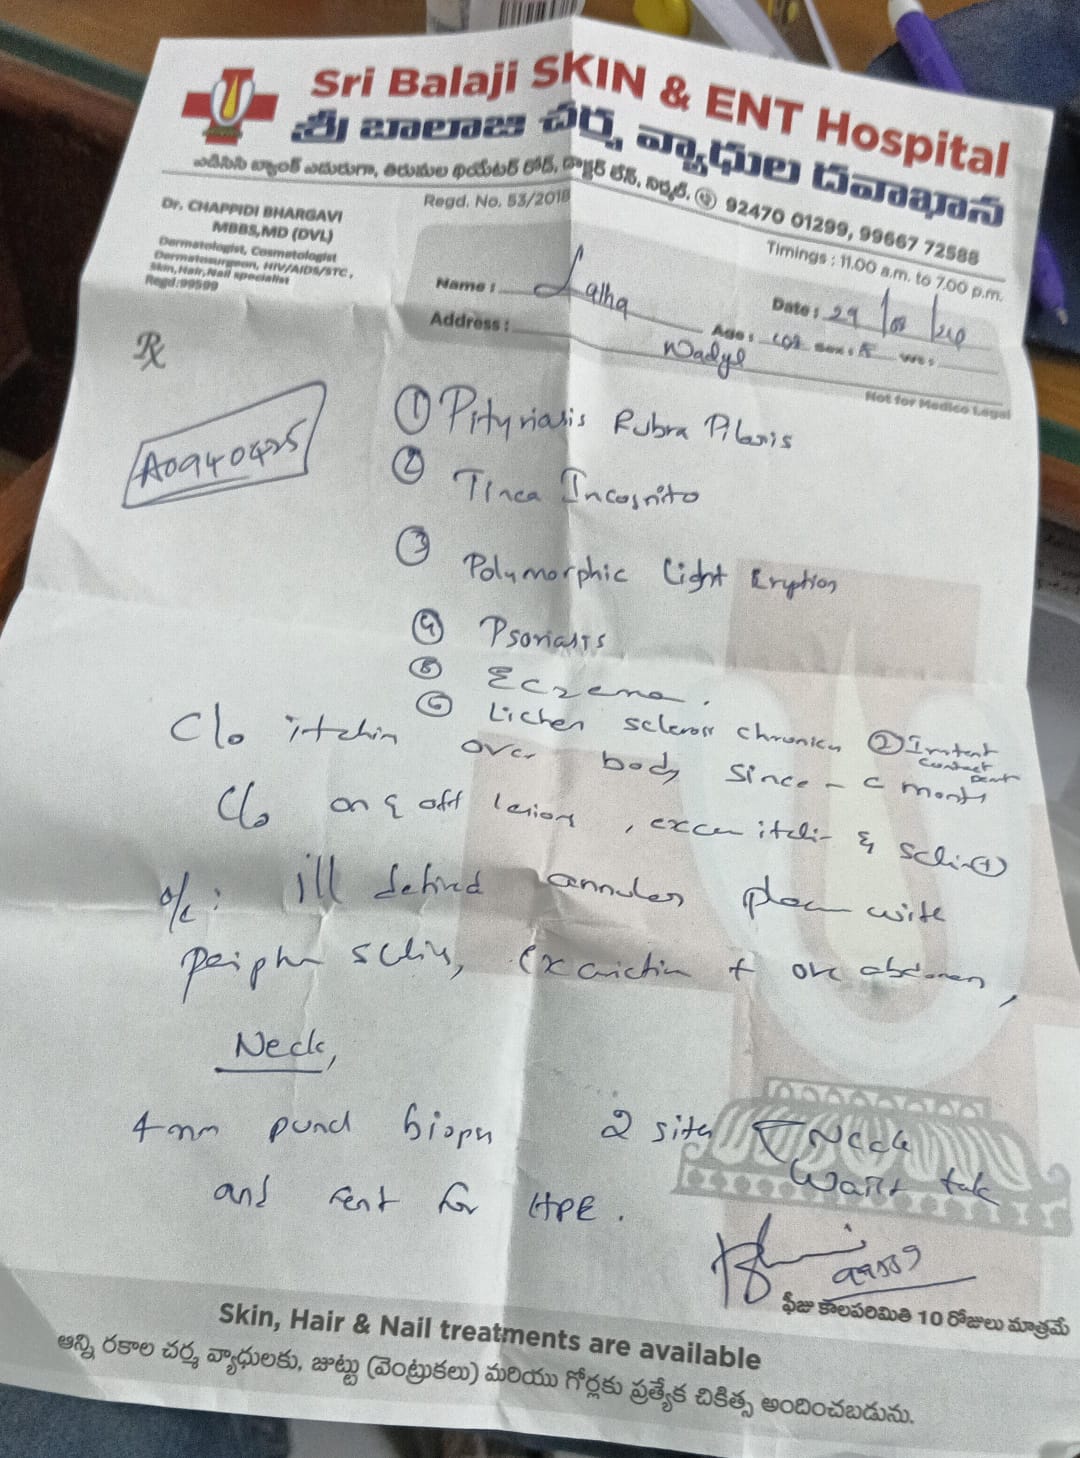 Sri Balaji SKIN & ENT Hospital
శ్రీ బాలాజి చర్మ వ్యాధుల దవాఖాన
ఎడిసిసి బ్యాంక్ ఎదురుగా, తిరుమల థియేటర్ రోడ్, డాక్టర్ లేన్, నిర్మల్. 92470 01299, 99667 72588
Regd. No. 53/2018
Timings : 11.00 a.m. to 7.00 p.m.
Dr. CHAPPIDI BHARGAVI
MBBS,MD (DVL)
Dermatologist, Cosmetologist
Dermatosurgeon, HIV/AIDS/STC,
Skin,Hair,Nail specialist
Regd:99589
Name : Lalha Date : 29
Address : Age : Sex : F Wt :
Wadyl
Not for Medico Legal
Rx
A0940425
① Pityriasis Rubra Pilaris
② Tinea Incognito
③ Polymorphic Light Eruption
④ Psoriasis
⑤ Eczema.
⑥ Lichen chronicus ② Irritant
contact
C/o itchin over body since - months
C/o on & off lesions, itchi- &
o/e: ill defined annular with
over abdomen,
Neck,
4mm punch biopsy 2 sites Neck
Waist
and sent for HPE.
99589
ఫీజు కాలపరిమితి 10 రోజులు మాత్రమే
Skin, Hair & Nail treatments are available
అన్ని రకాల చర్మ వ్యాధులకు, జుట్టు (వెంట్రుకలు) మరియు గోర్లకు ప్రత్యేక చికిత్స అందించబడును.